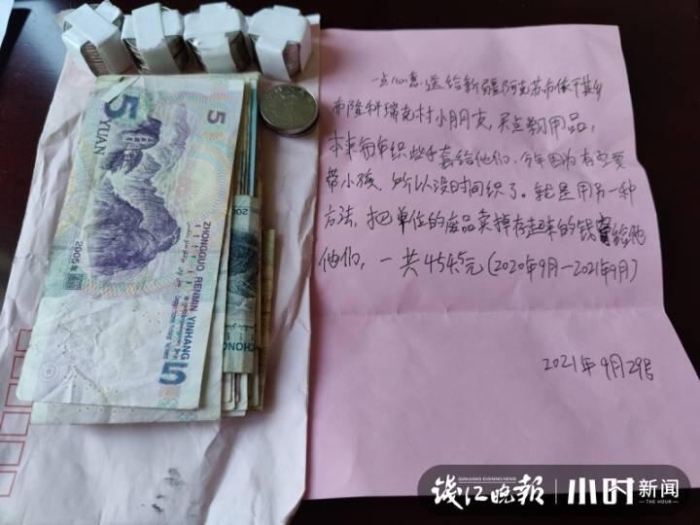 5
YUAN
ZHONGGUO RENMIN YINHANG
2005年
5
20
ZHONG
一点心意送给新疆阿克苏市依干其乡
帕隆科瑞克村小朋友,买点学习用品,
本来每年织些手套给他们,今年因为在家要
带小孩,所以没时间织了。就是用另一种
方法,把单位的废品卖掉存起来的钱寄给他
他们,一共454.5元(2020年9月-2021年9月)
2021年9月29号
钱江晚报
QIANJIANG EVENING NEWS
小时新闻
THE HOUR